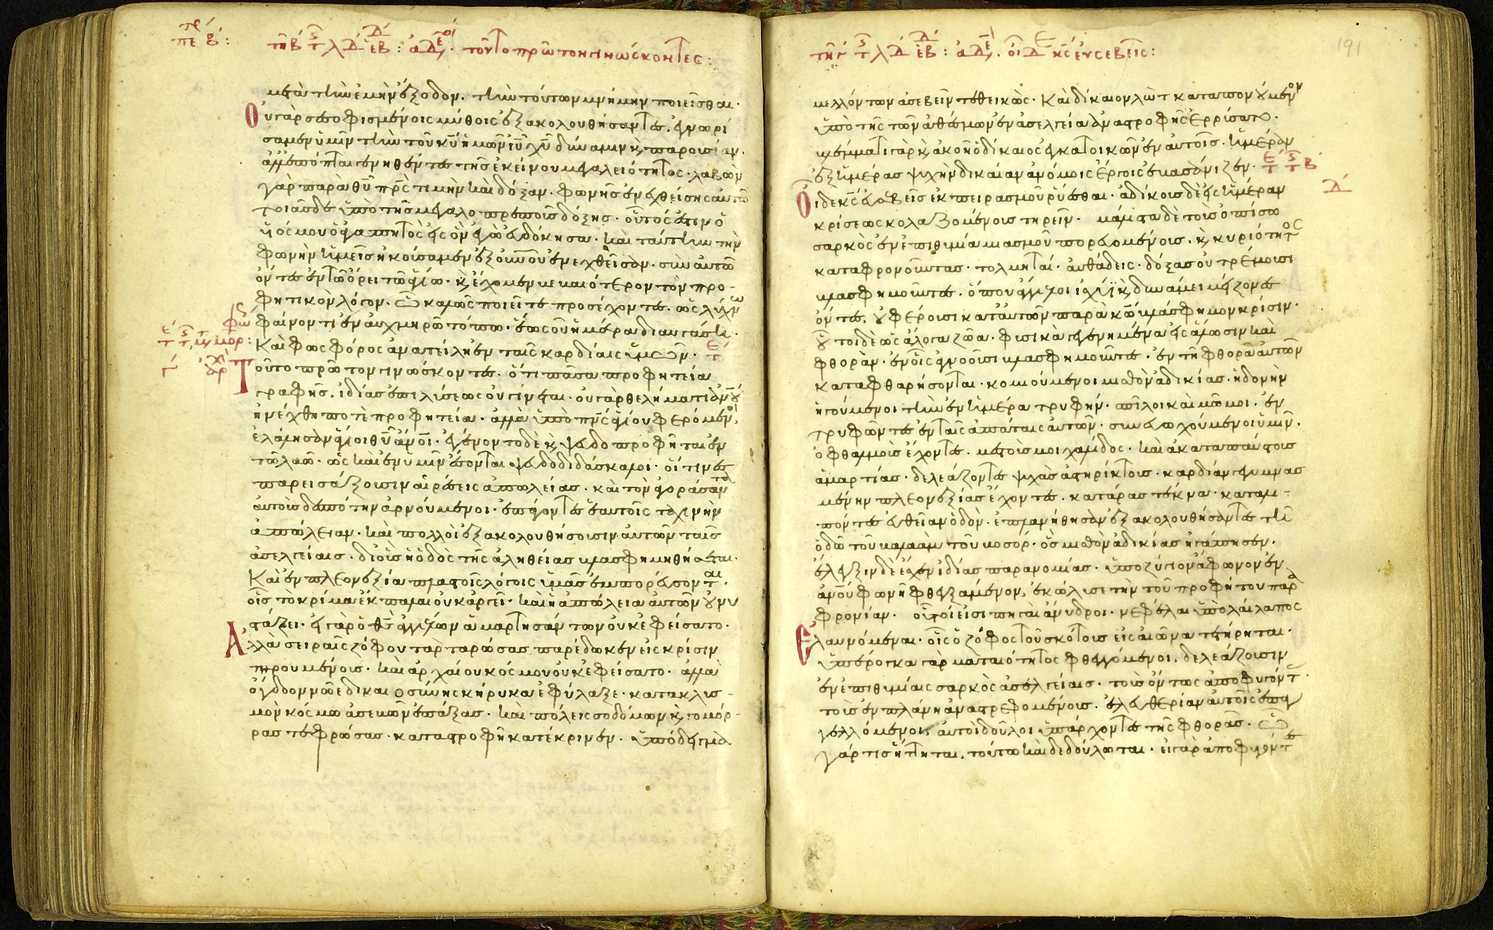 μετὰ τὴν ἐμὴν ἔξοδον. τὴν τούτων μνήμην ποιεῖσθαι.
Οὐ γὰρ σεσοφισμένοις μύθοις ἐξακολουθήσαντες. ἐγνωρί
σαμεν ὑμῖν τὴν τοῦ κυ ἡμῶν ιυ χυ δύναμιν κ παρουσίαν.
ἀλλ ἐπόπται γενηθέντες τῆς ἐκείνου μεγαλειότητος. λαβὼν
γὰρ παρὰ θυ πρς τιμὴν καὶ δόξαν. φωνῆς ἐνεχθείσης αὐτῶ
τοιᾶσδε ὑπὸ τῆς μεγαλοπρεποῦς δόξης. οὗτός ἐστιν ὁ
υς μου ὁ ἀγαπητὸς εἰς ὃν ἐγὼ εὐδόκησα. καὶ ταύτην τὴν
φωνὴν ἡμεῖς ἠκούσαμεν ἐξ οὐνου ἐνεχθεῖσαν. σὺν αὐτῶ
ὄντες ἐν τῶ ὄρει τῶ ἁγίω. κ ἔχομεν βεβαιότερον τὸν προ-
φητικὸν λόγον. ὧ καλῶς ποιεῖτε προσέχοντες. ὡς λύχνω
φαίνοντι ἐν αὐχμηρῶ τόπω. ἕως οὗ ἡμέρα διαυγάση.
Καὶ φωσφόρος ἀνατείλη ἐν ταῖς καρδίαις ὑμῶν.
Τοῦτο πρῶτον γινώσκοντες. ὅτι πᾶσα προφητεία
γραφῆς. ἰδίας ἐπιλύσεως οὐ γίνεται. οὐ γὰρ θελήματι ανου
ἠνέχθη ποτὲ προφητεία. ἀλλ ὑπὸ πνς ἁγίου φερόμενοι
ἐλάλησαν ἅγιοι θυ ανοι. ἐγένοντο δὲ κ ψευδοπροφῆται ἐν
τῶ λαῶ. ὡς καὶ ἐν ὑμῖν ἔσονται ψευδοδιδάσκαλοι. οἵτινες
παρεισάξουσιν αἱρέσεις ἀπωλείας. καὶ τὸν ἀγοράσαντα
αὐτοὺς δεσπότην ἀρνούμενοι. ἐπάγοντες ἑαυτοῖς ταχινὴν
ἀπώλειαν. καὶ πολλοὶ ἐξακολουθήσουσιν αὐτῶν ταῖς
ἀσελγείαις. δι οὓς ἡ ὁδὸς τῆς ἀληθείας βλασφημηθήσεται.
Καὶ ἐν πλεονεξία πλαστοῖς λόγοις ὑμᾶς ἐμπορεύσονται.
οἷς τὸ κρίμα ἔκπαλαι οὐκ ἀργεῖ. καὶ ἡ ἀπώλεια αὐτῶν οὐ νυ
στάξει. εἰ γὰρ ὁ θς ἀγγέλων ἁμαρτησάντων οὐκ ἐφείσατο.
Ἀλλὰ σειραῖς ζόφου ταρταρώσας παρέδωκεν εἰς κρίσιν
τηρουμένους. καὶ ἀρχαίου κόσμου οὐκ ἐφείσατο. ἀλλὰ
ὄγδοον νῶε δικαιοσύνης κήρυκα ἐφύλαξε. κατακλυσ-
μὸν κόσμω ἀσεβῶν ἐπάξας. καὶ πόλεις σοδόμων κ γομόρ-
ρας τεφρώσας. καταστροφῆ κατέκρινεν. ὑπόδειγμα
191
μελλόντων ἀσεβεῖν τεθεικώς. Καὶ δίκαιον λὼτ καταπονούμενον
ὑπὸ τῆς τῶν ἀθέσμων ἐν ἀσελγεία ἀναστροφῆς ἐρρύσατο.
βλέμματι γὰρ κ ἀκοῆ ὁ δίκαιος ἐγκατοικῶν ἐν αὐτοῖς. ἡμέραν
ἐξ ἡμέρας ψυχὴν δικαίαν ἀνόμοις ἔργοις ἐβασάνιζεν.
Οἶδε κς εὐσεβεῖς ἐκ πειρασμοῦ ῥύεσθαι. ἀδίκους δὲ εἰς ἡμέραν
κρίσεως κολαζομένους τηρεῖν. μάλιστα δὲ τοὺς ὀπίσω
σαρκὸς ἐν ἐπιθυμία μιασμοῦ πορευομένους. κ κυριότητος
καταφρονοῦντας. τολμηταί. αὐθάδεις. δόξας οὐ τρέμουσι
βλασφημοῦντες. ὅπου ἄγγελοι ἰσχύϊ κ δυνάμει μείζονες
ὄντες. οὐ φέρουσι κατ αὐτῶν παρὰ κω βλάσφημον κρίσιν.
οὗτοι δὲ ὡς ἄλογα ζῶα. φυσικὰ γεγενημένα εἰς ἅλωσιν καὶ
φθοράν. ἐν οἷς ἀγνοοῦσι βλασφημοῦντες. ἐν τῆ φθορᾶ αὐτῶν
καταφθαρήσονται. κομιούμενοι μισθὸν ἀδικίας. ἡδονὴν
ἡγούμενοι τὴν ἐν ἡμέρα τρυφήν. σπῖλοι καὶ μῶμοι. ἐν
τρυφῶντες ἐν ταῖς ἀπάταις αὐτῶν. συνευωχούμενοι ὑμῖν.
ὀφθαλμοὺς ἔχοντες. μεστοὺς μοιχαλίδος. καὶ ἀκαταπαύστους
ἁμαρτίας. δελεάζοντες ψυχὰς ἀστηρίκτους. καρδίαν γεγυμνασ
μένην πλεονεξίας ἔχοντες. κατάρας τέκνα. καταλι-
πόντες εὐθεῖαν ὁδόν. ἐπλανήθησαν ἐξακολουθήσαντες τῆ
ὁδῶ τοῦ βαλαὰμ τοῦ βοσόρ. ὃς μισθὸν ἀδικίας ἠγάπησεν.
ἔλεγξιν δὲ ἔσχεν ἰδίας παρανομίας. ὑποζύγιον ἄφωνον ἐν
ανου φωνῆ φθεγξάμενον, ἐκώλυσε τὴν τοῦ προφήτου παρα
φρονίαν. οὗτοί εἰσι πηγαὶ ἄνυδροι. νεφέλαι ὑπὸ λαίλαπος
Ἐλαυνόμεναι. οἷς ὁ ζόφος τοῦ σκότους εἰς αἰῶνα τετήρηται.
ὑπέρογκα γὰρ ματαιότητος φθεγγόμενοι. δελεάζουσιν
ἐν ἐπιθυμίαις σαρκὸς ἀσελγείαις. τοὺς ὄντως ἀποφυγόντας
τοὺς ἐν πλάνη ἀναστρεφομένους. ἐλευθερίαν αὐτοῖς ἐπαγ
γελλόμενοι, αὐτοὶ δοῦλοι ὑπάρχοντες τῆς φθορᾶς. ὧ
γάρ τις ἥττηται, τούτω καὶ δεδούλωται. εἰ γὰρ ἀποφυγόντες